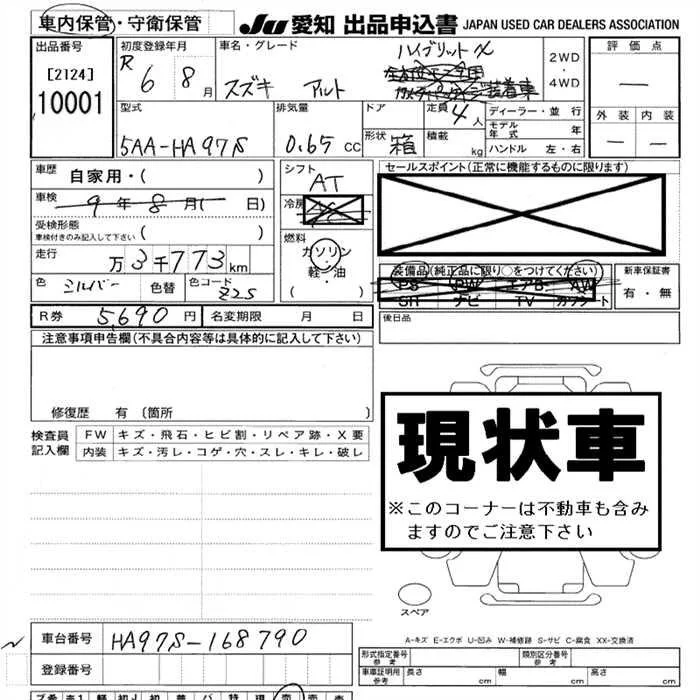 車内保管・守衛保管
JU 愛知 出品申込書 JAPAN USED CAR DEALERS ASSOCIATION
出品番号
[2124]
10001
初度登録年月
R 6 8月
車名・グレード
スズキ アルト
ハイブリット X
2WD
・
4WD
評価点
—
外装 内装
— —
型式
5AA-HA97S
排気量
0.65 CC
ドア
形状 箱
定員 4人
積載 kg
ディーラー・並行
モデル年式 年
ハンドル 左・右
車歴 自家用・( )
車検 9年8月( 日)
受検形態
車検付きのみ記入して下さい ( )
走行 万3千773km
色 シルバー 色替 色コード Z2S
シフト
AT
冷房
燃料
ガソリン
軽・油
( )
セールスポイント(正常に機能するものに限ります)
装備品(純正品に限り○をつけてください)
PS PW エアB AW
SH ナビ TV カワシート
新車保証書
有・無
R券 5,690円 名変期限 月 日
後日品
注意事項申告欄(不具合内容等は具体的に記入して下さい)
修復歴 有〔箇所 〕
検査員記入欄
FW キズ・飛石・ヒビ割・リペア跡・X要
内装 キズ・汚レ・コゲ・穴・スレ・キレ・破レ
現状車
※このコーナーは不動車も含み
ますのでご注意下さい
スペア
A-キズ E-エクボ U-凹み W-補修跡 S-サビ C-腐食 XX-交換済
車台番号 HA97S-168790
登録番号
形式指定番号
参考
類別区分番号
参考
車庫証明用
参考
長さ cm 幅 cm 高さ cm